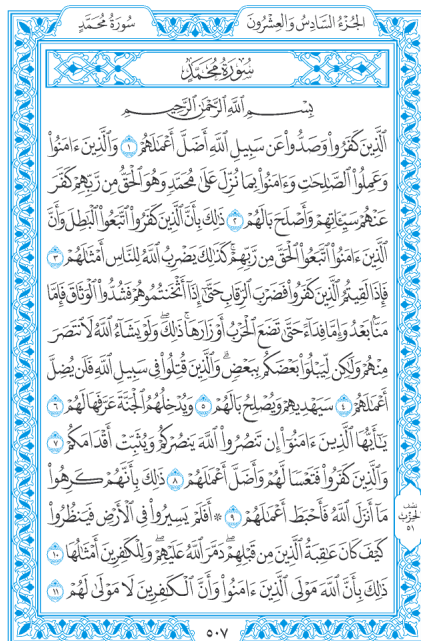 الجُزْءُ السَّادِسُ وَالْعِشْرُونَ سُورَةُ مُحَمَّدٍ
سُورَةُ مُحَمَّدٍ
بِسْمِ ٱللَّهِ ٱلرَّحْمَٰنِ ٱلرَّحِيمِ
ٱلَّذِينَ كَفَرُوا۟ وَصَدُّوا۟ عَن سَبِيلِ ٱللَّهِ أَضَلَّ أَعْمَٰلَهُمْ ١ وَٱلَّذِينَ ءَامَنُوا۟
وَعَمِلُوا۟ ٱلصَّٰلِحَٰتِ وَءَامَنُوا۟ بِمَا نُزِّلَ عَلَىٰ مُحَمَّدٍ وَهُوَ ٱلْحَقُّ مِن رَّبِّهِمْ كَفَّرَ
عَنْهُمْ سَيِّـَٔاتِهِمْ وَأَصْلَحَ بَالَهُمْ ٢ ذَٰلِكَ بِأَنَّ ٱلَّذِينَ كَفَرُوا۟ ٱتَّبَعُوا۟ ٱلْبَٰطِلَ وَأَنَّ
ٱلَّذِينَ ءَامَنُوا۟ ٱتَّبَعُوا۟ ٱلْحَقَّ مِن رَّبِّهِمْ ۚ كَذَٰلِكَ يَضْرِبُ ٱللَّهُ لِلنَّاسِ أَمْثَٰلَهُمْ ٣
فَإِذَا لَقِيتُمُ ٱلَّذِينَ كَفَرُوا۟ فَضَرْبَ ٱلرِّقَابِ حَتَّىٰٓ إِذَآ أَثْخَنتُمُوهُمْ فَشُدُّوا۟ ٱلْوَثَاقَ فَإِمَّا
مَنًّۢا بَعْدُ وَإِمَّا فِدَآءً حَتَّىٰ تَضَعَ ٱلْحَرْبُ أَوْزَارَهَا ۚ ذَٰلِكَ ۖ وَلَوْ يَشَآءُ ٱللَّهُ لَٱنتَصَرَ
مِنْهُمْ وَلَٰكِن لِّيَبْلُوَا۟ بَعْضَكُم بِبَعْضٍ ۗ وَٱلَّذِينَ قُتِلُوا۟ فِى سَبِيلِ ٱللَّهِ فَلَن يُضِلَّ
أَعْمَٰلَهُمْ ٤ سَيَهْدِيهِمْ وَيُصْلِحُ بَالَهُمْ ٥ وَيُدْخِلُهُمُ ٱلْجَنَّةَ عَرَّفَهَا لَهُمْ ٦
يَٰٓأَيُّهَا ٱلَّذِينَ ءَامَنُوٓا۟ إِن تَنصُرُوا۟ ٱللَّهَ يَنصُرْكُمْ وَيُثَبِّتْ أَقْدَامَكُمْ ٧
وَٱلَّذِينَ كَفَرُوا۟ فَتَعْسًا لَّهُمْ وَأَضَلَّ أَعْمَٰلَهُمْ ٨ ذَٰلِكَ بِأَنَّهُمْ كَرِهُوا۟
مَآ أَنزَلَ ٱللَّهُ فَأَحْبَطَ أَعْمَٰلَهُمْ ٩ ۞ أَفَلَمْ يَسِيرُوا۟ فِى ٱلْأَرْضِ فَيَنظُرُوا۟
كَيْفَ كَانَ عَٰقِبَةُ ٱلَّذِينَ مِن قَبْلِهِمْ ۚ دَمَّرَ ٱللَّهُ عَلَيْهِمْ ۖ وَلِلْكَٰفِرِينَ أَمْثَٰلُهَا ١٠
ذَٰلِكَ بِأَنَّ ٱللَّهَ مَوْلَى ٱلَّذِينَ ءَامَنُوا۟ وَأَنَّ ٱلْكَٰفِرِينَ لَا مَوْلَىٰ لَهُمْ ١١
نصف
الحزب
٥١
٥٠٧